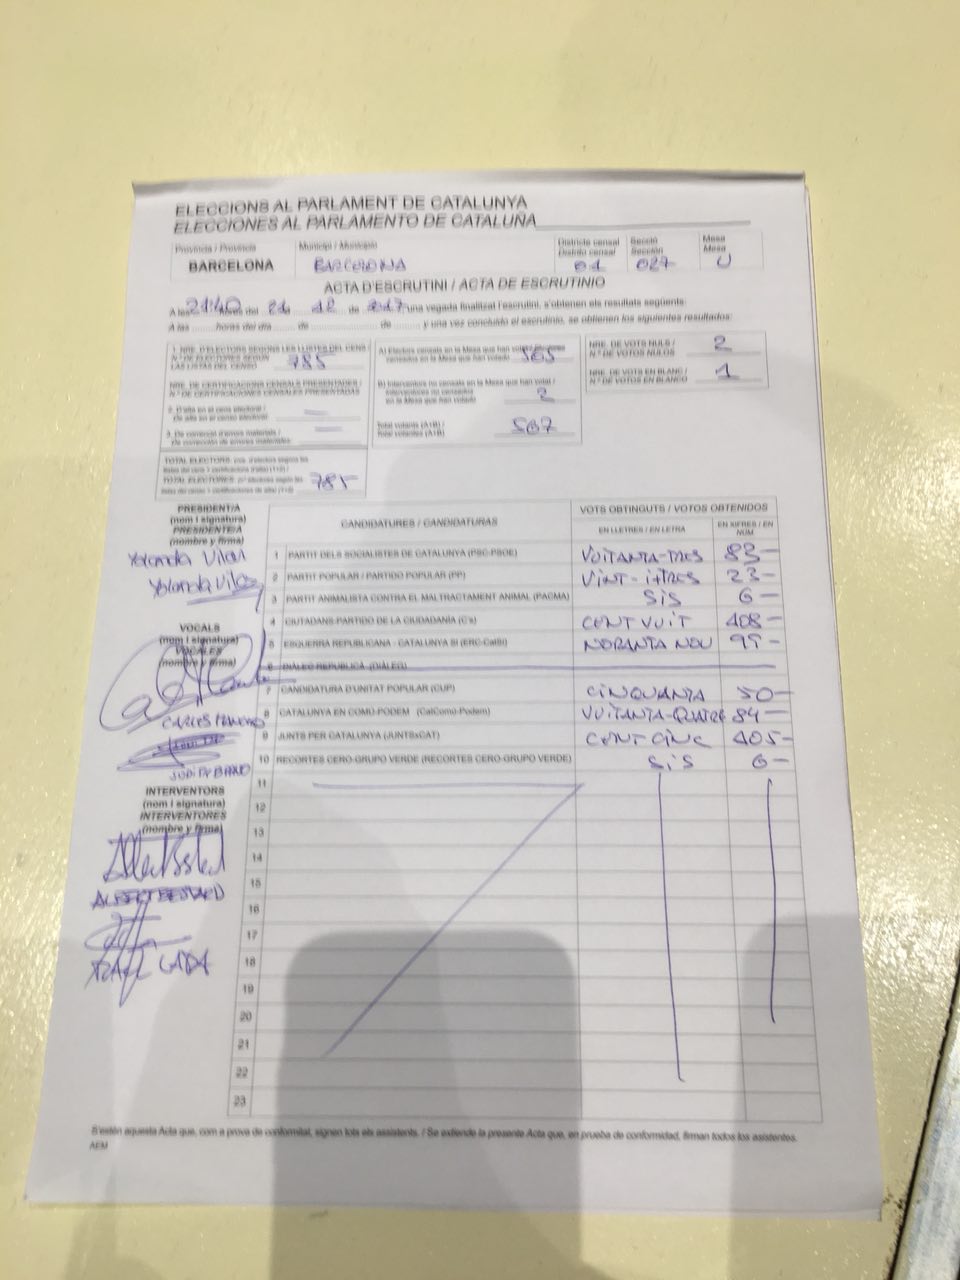 ELECCIONS AL PARLAMENT DE CATALUNYA
ELECCIONES AL PARLAMENTO DE CATALUÑA
Província / Provincia
BARCELONA
Municipi / Municipio
BARCELONA
Districte censal
Distrito censal
01
Secció
Sección
027
Mesa
Mesa
U
ACTA D'ESCRUTINI / ACTA DE ESCRUTINIO
A les 21:40 hores del 21 de 12 de 2017, una vegada finalitzat l'escrutini, s'obtenen els resultats següents:
A las ........ horas del día ........ de ........ de ........ y una vez concluido el escrutinio, se obtienen los siguientes resultados:
1. NRE. D'ELECTORS SEGONS LES LLISTES DEL CENS
N.º DE ELECTORES SEGÚN
LAS LISTAS DEL CENSO
785
NRE. DE CERTIFICACIONS CENSALS PRESENTADES /
N.º DE CERTIFICACIONES CENSALES PRESENTADAS
2. D'alta en el cens electoral /
De alta en el censo electoral
3. De correcció d'errors materials /
De corrección de errores materiales
TOTAL ELECTORS
TOTAL ELECTORES
785
censados en la Mesa que han votado 565
B) Interventors no censats en la Mesa que han votat /
Interventores no censados
en la Mesa que han votado
2
Total votants (A+B) /
Total votantes (A+B)
567
NRE. DE VOTS NULS /
N.º DE VOTOS NULOS
2
NRE. DE VOTS EN BLANC /
N.º DE VOTOS EN BLANCO
1
PRESIDENT/A
(nom i signatura)
PRESIDENTE/A
(nombre y firma)
Yolanda Vilar
Yolanda Vilar
VOCALS
(nom i signatura)
VOCALES
(nombre y firma)
CARLES
INTERVENTORS
(nom i signatura)
INTERVENTORES
(nombre y firma)
CANDIDATURES / CANDIDATURAS
VOTS OBTINGUTS / VOTOS OBTENIDOS
EN LLETRES / EN LETRA
EN XIFRES / EN NUM
1 PARTIT DELS SOCIALISTES DE CATALUNYA (PSC-PSOE) VUITANTA-TRES 83-
2 PARTIT POPULAR / PARTIDO POPULAR (PP) VINT-I-TRES 23-
3 PARTIT ANIMALISTA CONTRA EL MALTRACTAMENT ANIMAL (PACMA) SIS 6-
4 CIUTADANS-PARTIDO DE LA CIUDADANÍA (C's) CENT VUIT 108-
5 ESQUERRA REPUBLICANA - CATALUNYA SÍ (ERC-CatSí) NORANTA NOU 99-
6 DIÀLEG REPÚBLICA (DIÀLEG)
7 CANDIDATURA D'UNITAT POPULAR (CUP) CINQUANTA 50-
8 CATALUNYA EN COMÚ-PODEM (CatComú-Podem) VUITANTA-QUATRE 84-
9 JUNTS PER CATALUNYA (JUNTSxCAT) CENT CINC 105-
10 RECORTES CERO-GRUPO VERDE (RECORTES CERO-GRUPO VERDE) SIS 6-
11
12
13
14
15
16
17
18
19
20
21
22
23
S'estén aquesta Acta que, com a prova de conformitat, signen tots els assistents. / Se extiende la presente Acta que, en prueba de conformidad, firman todos los asistentes.
AEM